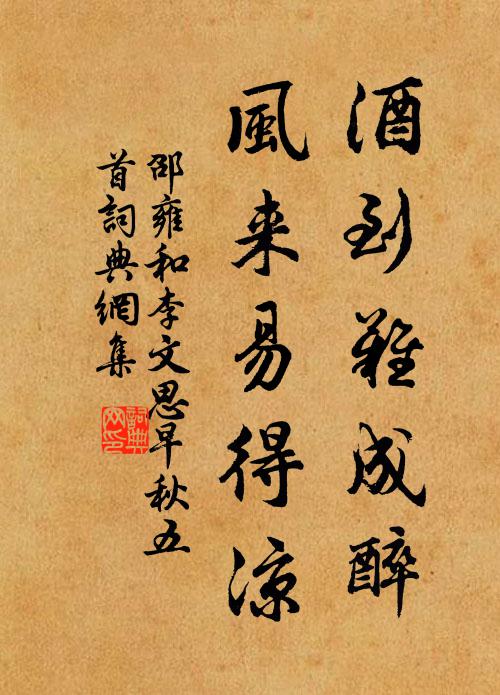 酒到難成醉
風来易得涼
邵雍和李文思早秋五
首詞典網集
詞典
网印